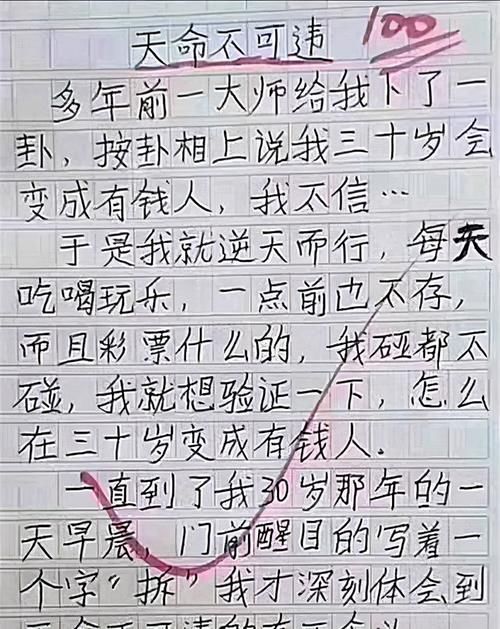 天命不可违 100
多年前一大师给我下了一
卦，按卦相上说我三十岁会
变成有钱人，我不信…
于是我就逆天而行，每天
吃喝玩乐，一点前也不存，
而且彩票什么的，我碰都不
碰，我就想验证一下，怎么
在三十岁变成有钱人。
一直到了我30岁那年的一
天早晨，门前醒目的写着一
个字“拆”我才深刻体会到